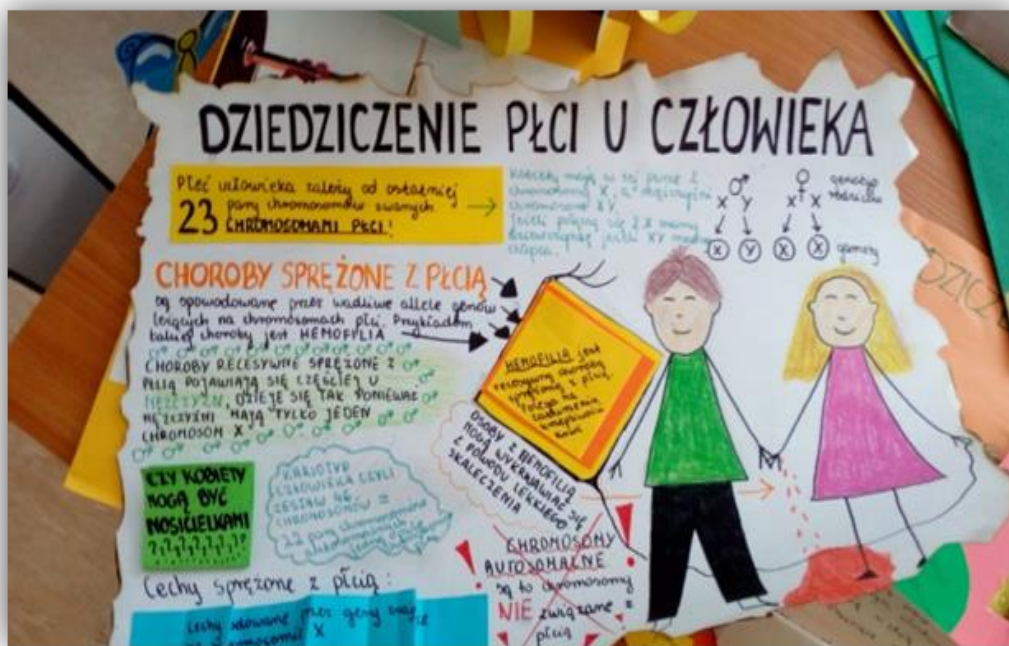 DZIEDZICZENIE PŁCI U CZŁOWIEKA
Płeć człowieka zależy od ostatniej
23 pary chromosomów zwanych
CHROMOSOMAMI PŁCI!
Kobiety mają w tej parze 2
chromosomy X, a mężczyźni
chromosomy XY.
Jeżeli połączą się 2 X mamy
dziewczynkę jeśli XY mamy
chłopca.
♂ ♀ genotyp
X Y X X rodziców
X Y X X gamety
CHOROBY SPRĘŻONE Z PŁCIĄ
są spowodowane przez wadliwe allele genów
leżących na chromosomach płci. Przykładem
takiej choroby jest HEMOFILIA
CHOROBY RECESYWNE SPRĘŻONE Z
PŁCIĄ POJAWIAJĄ SIĘ CZĘŚCIEJ U
MĘŻCZYZN, DZIEJE SIĘ TAK PONIEWAŻ
MĘŻCZYŹNI MAJĄ TYLKO JEDEN
CHROMOSOM X
HEMOFILIA jest
recesywną chorobą
sprzężoną z płcią.
Polega na
zaburzeniu
krzepliwości
krwi
OSOBY Z HEMOFILIĄ
MOGĄ WYKRWAWIAĆ SIĘ
Z POWODU LEKKIEGO
SKALECZENIA
CZY KOBIETY
MOGĄ BYĆ
NOSICIELKAMI
KARIOTYP
CZŁOWIEKA CZYLI
ZESTAW 46
CHROMOSOMÓW =
22 pary chromosomów
CHROMOSOMY
AUTOSOMALNE
są to chromosomy
NIE związane z
płcią
Cechy sprężone z płcią:
Cechy przez geny
X
DZICZ